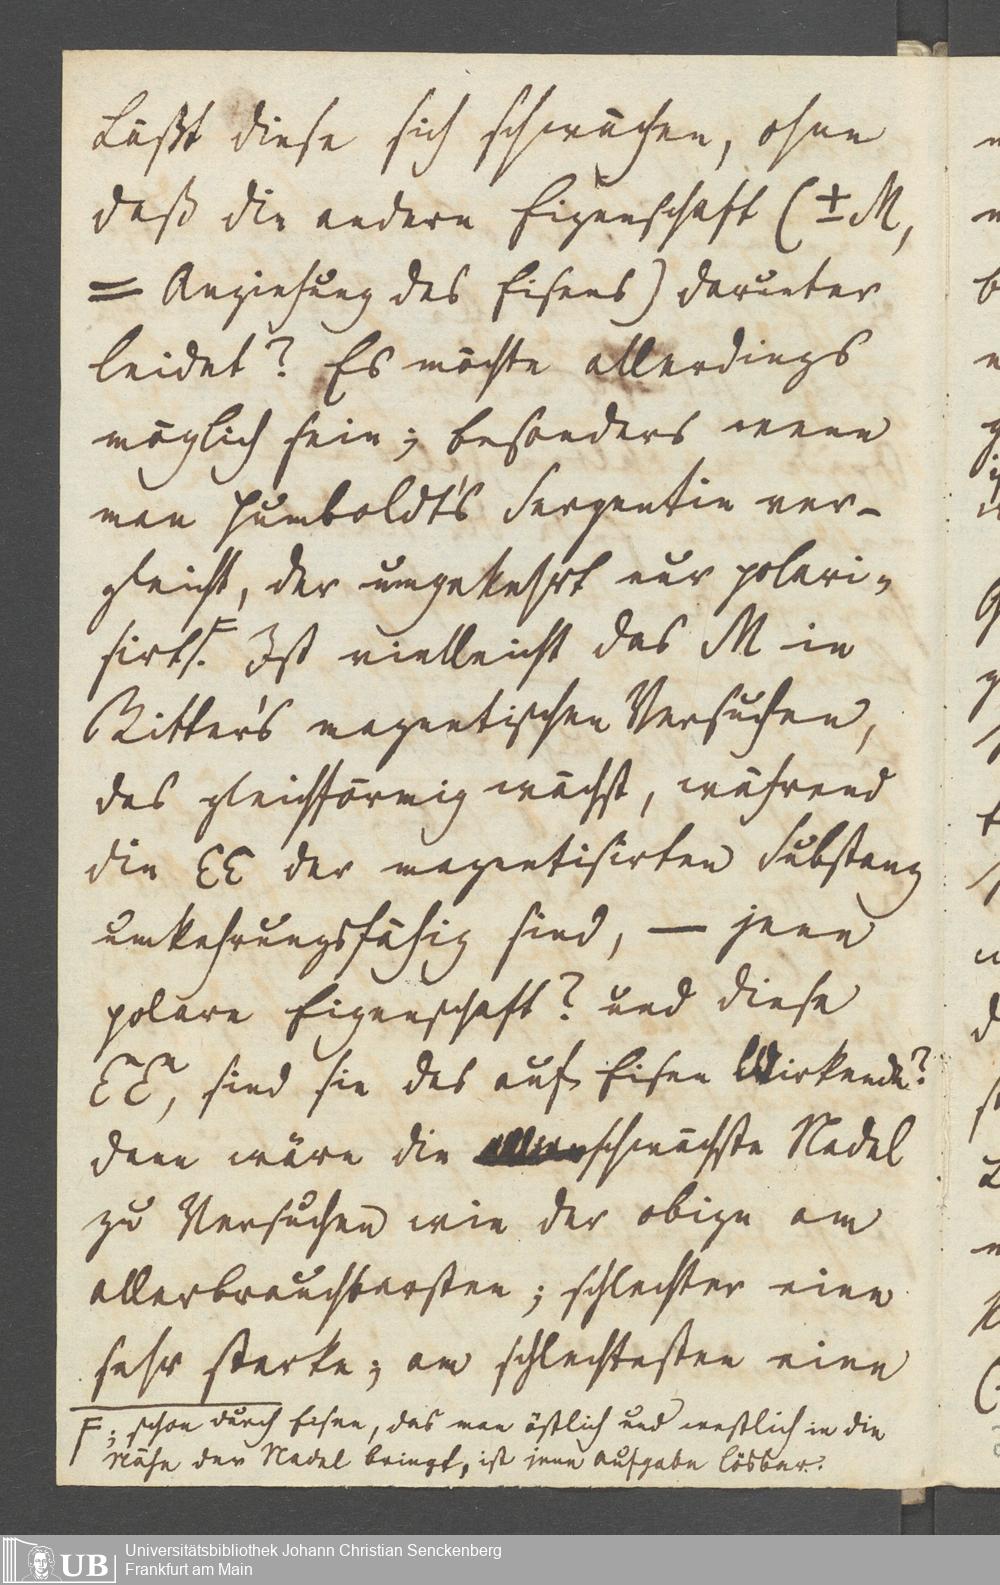 Läßt diese sich schwächen, ohne
daß die andere Eigenschaft (±M,
= Anziehung des Eisens) darunter
leidet? Es möchte allerdings
möglich sein; besonders wenn
man Humboldt's Serpentin ver-
gleicht, der umgekehrt nur polari-
sirt. F Ist vielleicht das M in
Ritter's magnetischen Versuchen,
das gleichförmig wächst, während
die EE der magnetisirten Substanz
umkehrungsfähig sind, — jene
polare Eigenschaft? und diese
EnEn, sind sie das auf Eisen Wirkende?
dann wäre die schwächste Nadel
zu Versuchen wie der obige am
allerbrauchbarsten; schlechter eine
sehr starke; am schlechtesten eine
F; schon durch Eisen, das man östlich und westlich in die
Nähe der Nadel bringt, ist jene Aufgabe lösbar.
UB Universitätsbibliothek Johann Christian Senckenberg
Frankfurt am Main